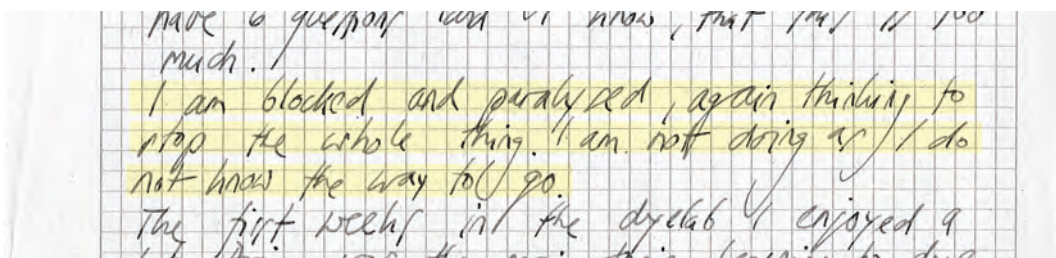 have 6 question and I know, that this is too
much.
I am blocked and paralysed, again thinking to
stop the whole thing. I am not doing as I do
not know the way to go.
The first weeks in the dyelab I enjoyed a